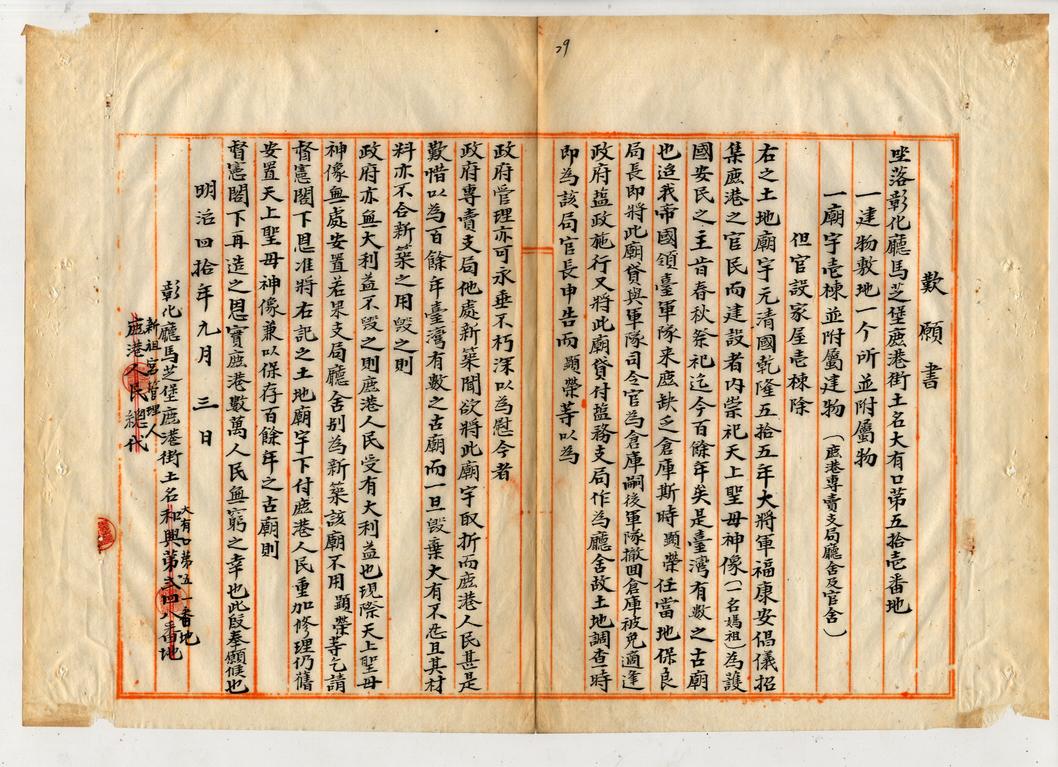 29
歎願書
坐落彰化廳馬芝堡鹿港街土名大有口第五拾壱番地
一建物敷地一个所並附屬物
一廟宇壱棟並附屬建物(鹿港專賣支局廳舍及官舍)
但官設家屋壱棟除
右之土地廟宇元清國乾隆五拾五年大將軍福康安倡儀招
集鹿港之官民而建設者内崇祀天上聖母神像(一名媽祖)為護
國安民之主旹春秋祭祀迄今百餘年矣是臺灣有数之古廟
也迨我帝國領臺軍隊来鹿缺乏倉庫斯時顕榮任當地保良
局長即將此廟貸與軍隊司令官為倉庫嗣後軍隊撤囬倉庫被免適逢
政府塩政施行又將此廟貸付塩務支局作為廳舍故土地調查時
即為該局官長申告而顕榮等以為
政府管理亦可永垂不朽深以為慰今者
政府專賣支局他處新築聞欲將此廟宇取折而鹿港人民甚是
歎惜以為百餘年臺灣有数之古廟而一旦毀棄大有不忍且其材
料亦不合新築之用毀之則
政府亦無大利益不毀之則鹿港人民受有大利益也現際天上聖母
神像無處安置若果支局廳舍別為新築該廟不用顕榮等乞請
督憲閣下恩准將右記之土地廟宇下付鹿港人民重加修理仍舊
安置天上聖母神像兼以保存百餘年之古廟則
督憲閣下再造之恩實鹿港數萬人民無窮之幸也此段奉願候也
明治四拾年九月三日
大有口第五一番地
彰化廳馬芝堡鹿港街土名和興第弍四八番地
新祖宮管理人
鹿港人民總代